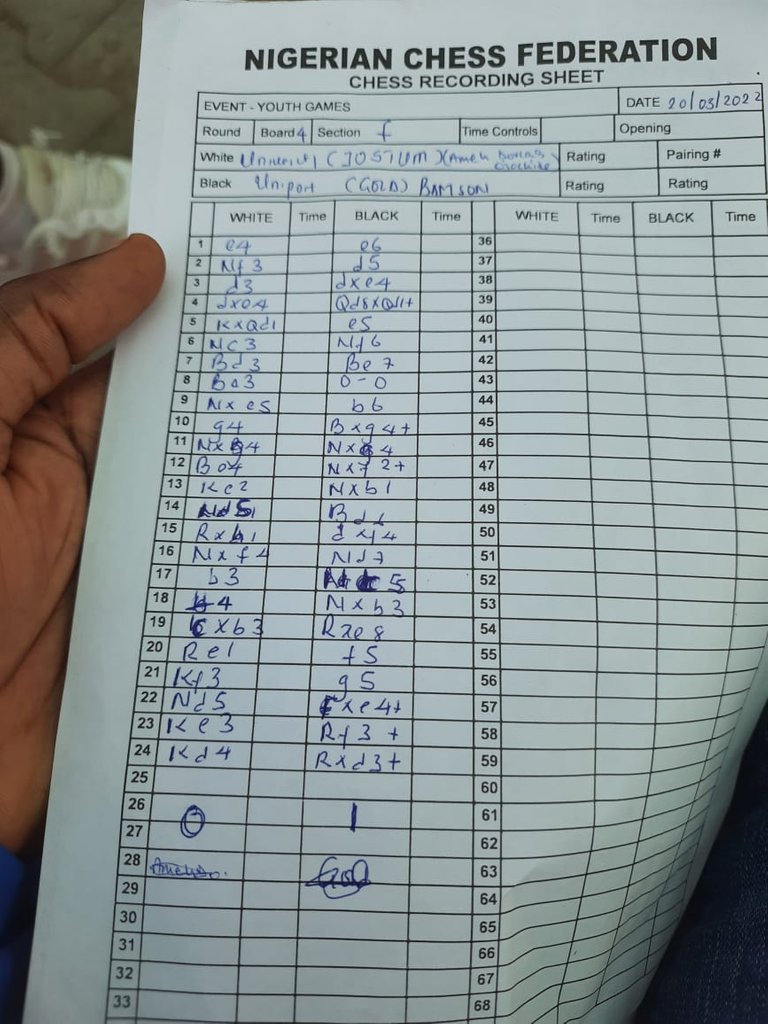 NIGERIAN CHESS FEDERATION
CHESS RECORDING SHEET
EVENT - YOUTH GAMES DATE 20/03/2022
Round Board 4 Section f Time Controls Opening
White (JOSTUM) Rating Pairing #
Black Uniport (GOLD) BAMSON Rating Rating
WHITE Time BLACK Time WHITE Time BLACK Time
1 e4 e6 36
2 Nf3 d5 37
3 d3 dxe4 38
4 dxe4 Qd8xQd1+ 39
5 KxQd1 e5 40
6 NC3 Nf6 41
7 Bd3 Be7 42
8 Be3 0-0 43
9 Nxe5 b6 44
10 g4 Bxg4+ 45
11 46
12 Nx72+ 47
13 Ke2 Nxb1 48
14 49
15 50
16 Nxf4 Nd7 51
17 b3 52
18 Nxb3 53
19 Rxe8 54
20 Re1 f5 55
21 Kf3 g5 56
22 Nd5 57
23 Ke3 Rf3+ 58
24 Kd4 Rxd3+ 59
25 60
26 0 1 61
27 62
28 63
29 64
30 65
31 66
32 67
33 68